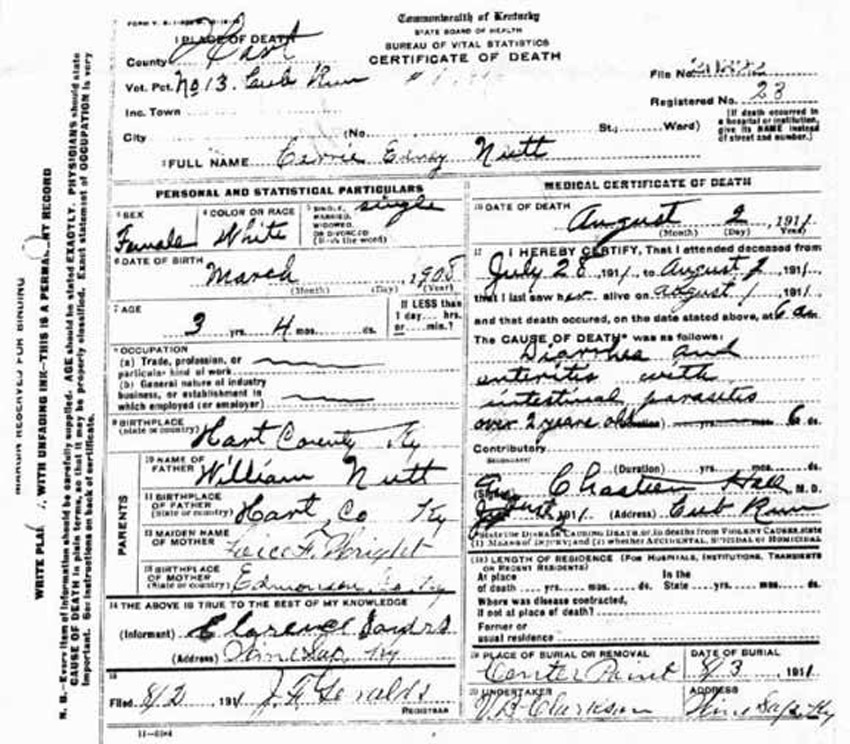 Commonwealth of Kentucky
STATE BOARD OF HEALTH
BUREAU OF VITAL STATISTICS
CERTIFICATE OF DEATH
1 PLACE OF DEATH
County Hart
Vot. Pct. No 13. Cub Run
File No.
Inc. Town
Registered No. 23
City (No. St.; Ward)
(If death occurred in a hospital or institution, give its NAME instead of street and number.)
2 FULL NAME Nutt
PERSONAL AND STATISTICAL PARTICULARS
3 SEX Female
4 COLOR OR RACE White
5 SINGLE, MARRIED, WIDOWED, OR DIVORCED (Write the word) single
6 DATE OF BIRTH
March, 1908
(Month) (Day) (Year)
7 AGE
3 yrs. 4 mos. ds.
If LESS than 1 day... hrs. or... min.?
8 OCCUPATION
(a) Trade, profession, or
particular kind of work
(b) General nature of industry
business, or establishment in
which employed (or employer)
9 BIRTHPLACE
(State or country) Hart County Ky
PARENTS
10 NAME OF FATHER William Nutt
11 BIRTHPLACE OF FATHER
(State or country) Hart Co Ky
12 MAIDEN NAME OF MOTHER F. Wright
13 BIRTHPLACE OF MOTHER
(State or country) Edmonson Co. Ky
14 THE ABOVE IS TRUE TO THE BEST OF MY KNOWLEDGE
(Informant) Clarence Sanders
(Address) Wine Sap, Ky
15
Filed 8/2 1911 J. F. Geralds
REGISTRAR
11-6304
MEDICAL CERTIFICATE OF DEATH
16 DATE OF DEATH
August 2, 1911
(Month) (Day) (Year)
17 I HEREBY CERTIFY, That I attended deceased from
July 28, 1911, to August 2, 1911,
that I last saw her alive on August 1, 1911,
and that death occured, on the date stated above, at 6 am.
The CAUSE OF DEATH* was as follows:
Diarrhea and
enteritis with
intestinal parasites
over 2 years old (Duration) yrs. mos. 6 ds.
Contributory
SECONDARY
(Duration) yrs. mos. ds.
(Signed) Hall M. D.
1911 (Address) Cub Run
*State the DISEASE CAUSING DEATH, or, in deaths from VIOLENT CAUSES, state
(1) MEANS OF INJURY; and (2) whether ACCIDENTAL, SUICIDAL or HOMICIDAL
(18) LENGTH OF RESIDENCE (FOR HOSPITALS, INSTITUTIONS, TRANSIENTS
OR RECENT RESIDENTS)
At place of death yrs. mos. ds. In the State yrs. mos. ds.
Where was disease contracted,
if not at place of death?
Former or
usual residence
19 PLACE OF BURIAL OR REMOVAL Center Point
DATE OF BURIAL 8/3 1911
20 UNDERTAKER V. B. Clarkson
ADDRESS Wine Sap, Ky
MARGIN RESERVED FOR BINDING
WRITE PLAINLY, WITH UNFADING INK—THIS IS A PERMANENT RECORD
N. B.—Every item of information should be carefully supplied. AGE should be stated EXACTLY. PHYSICIANS should state
CAUSE OF DEATH in plain terms, so that it may be properly classified. Exact statement of OCCUPATION is very
important. See instructions on back of certificate.